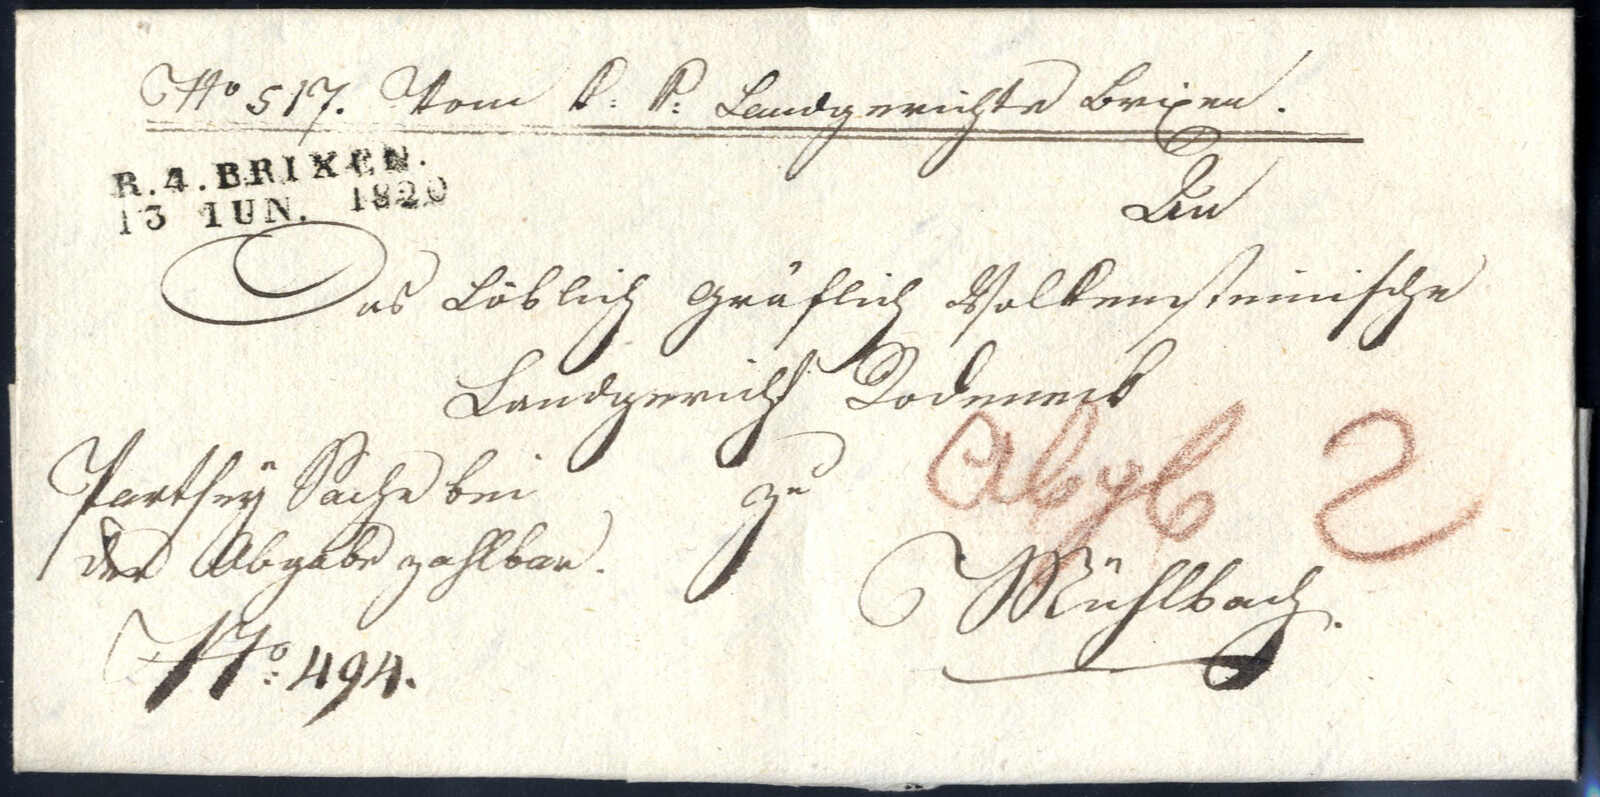 No 517. Vom K: K: Landgerichte Brixen.
R.4.BRIXEN.
13 IUN. 1820
An
Das Löblich gräflich Wolkensteinische
Landgericht Rodeneck
Parthey Sache bei
der Abgabe zahlbar.
zu
2
Mühlbach.
No: 494.